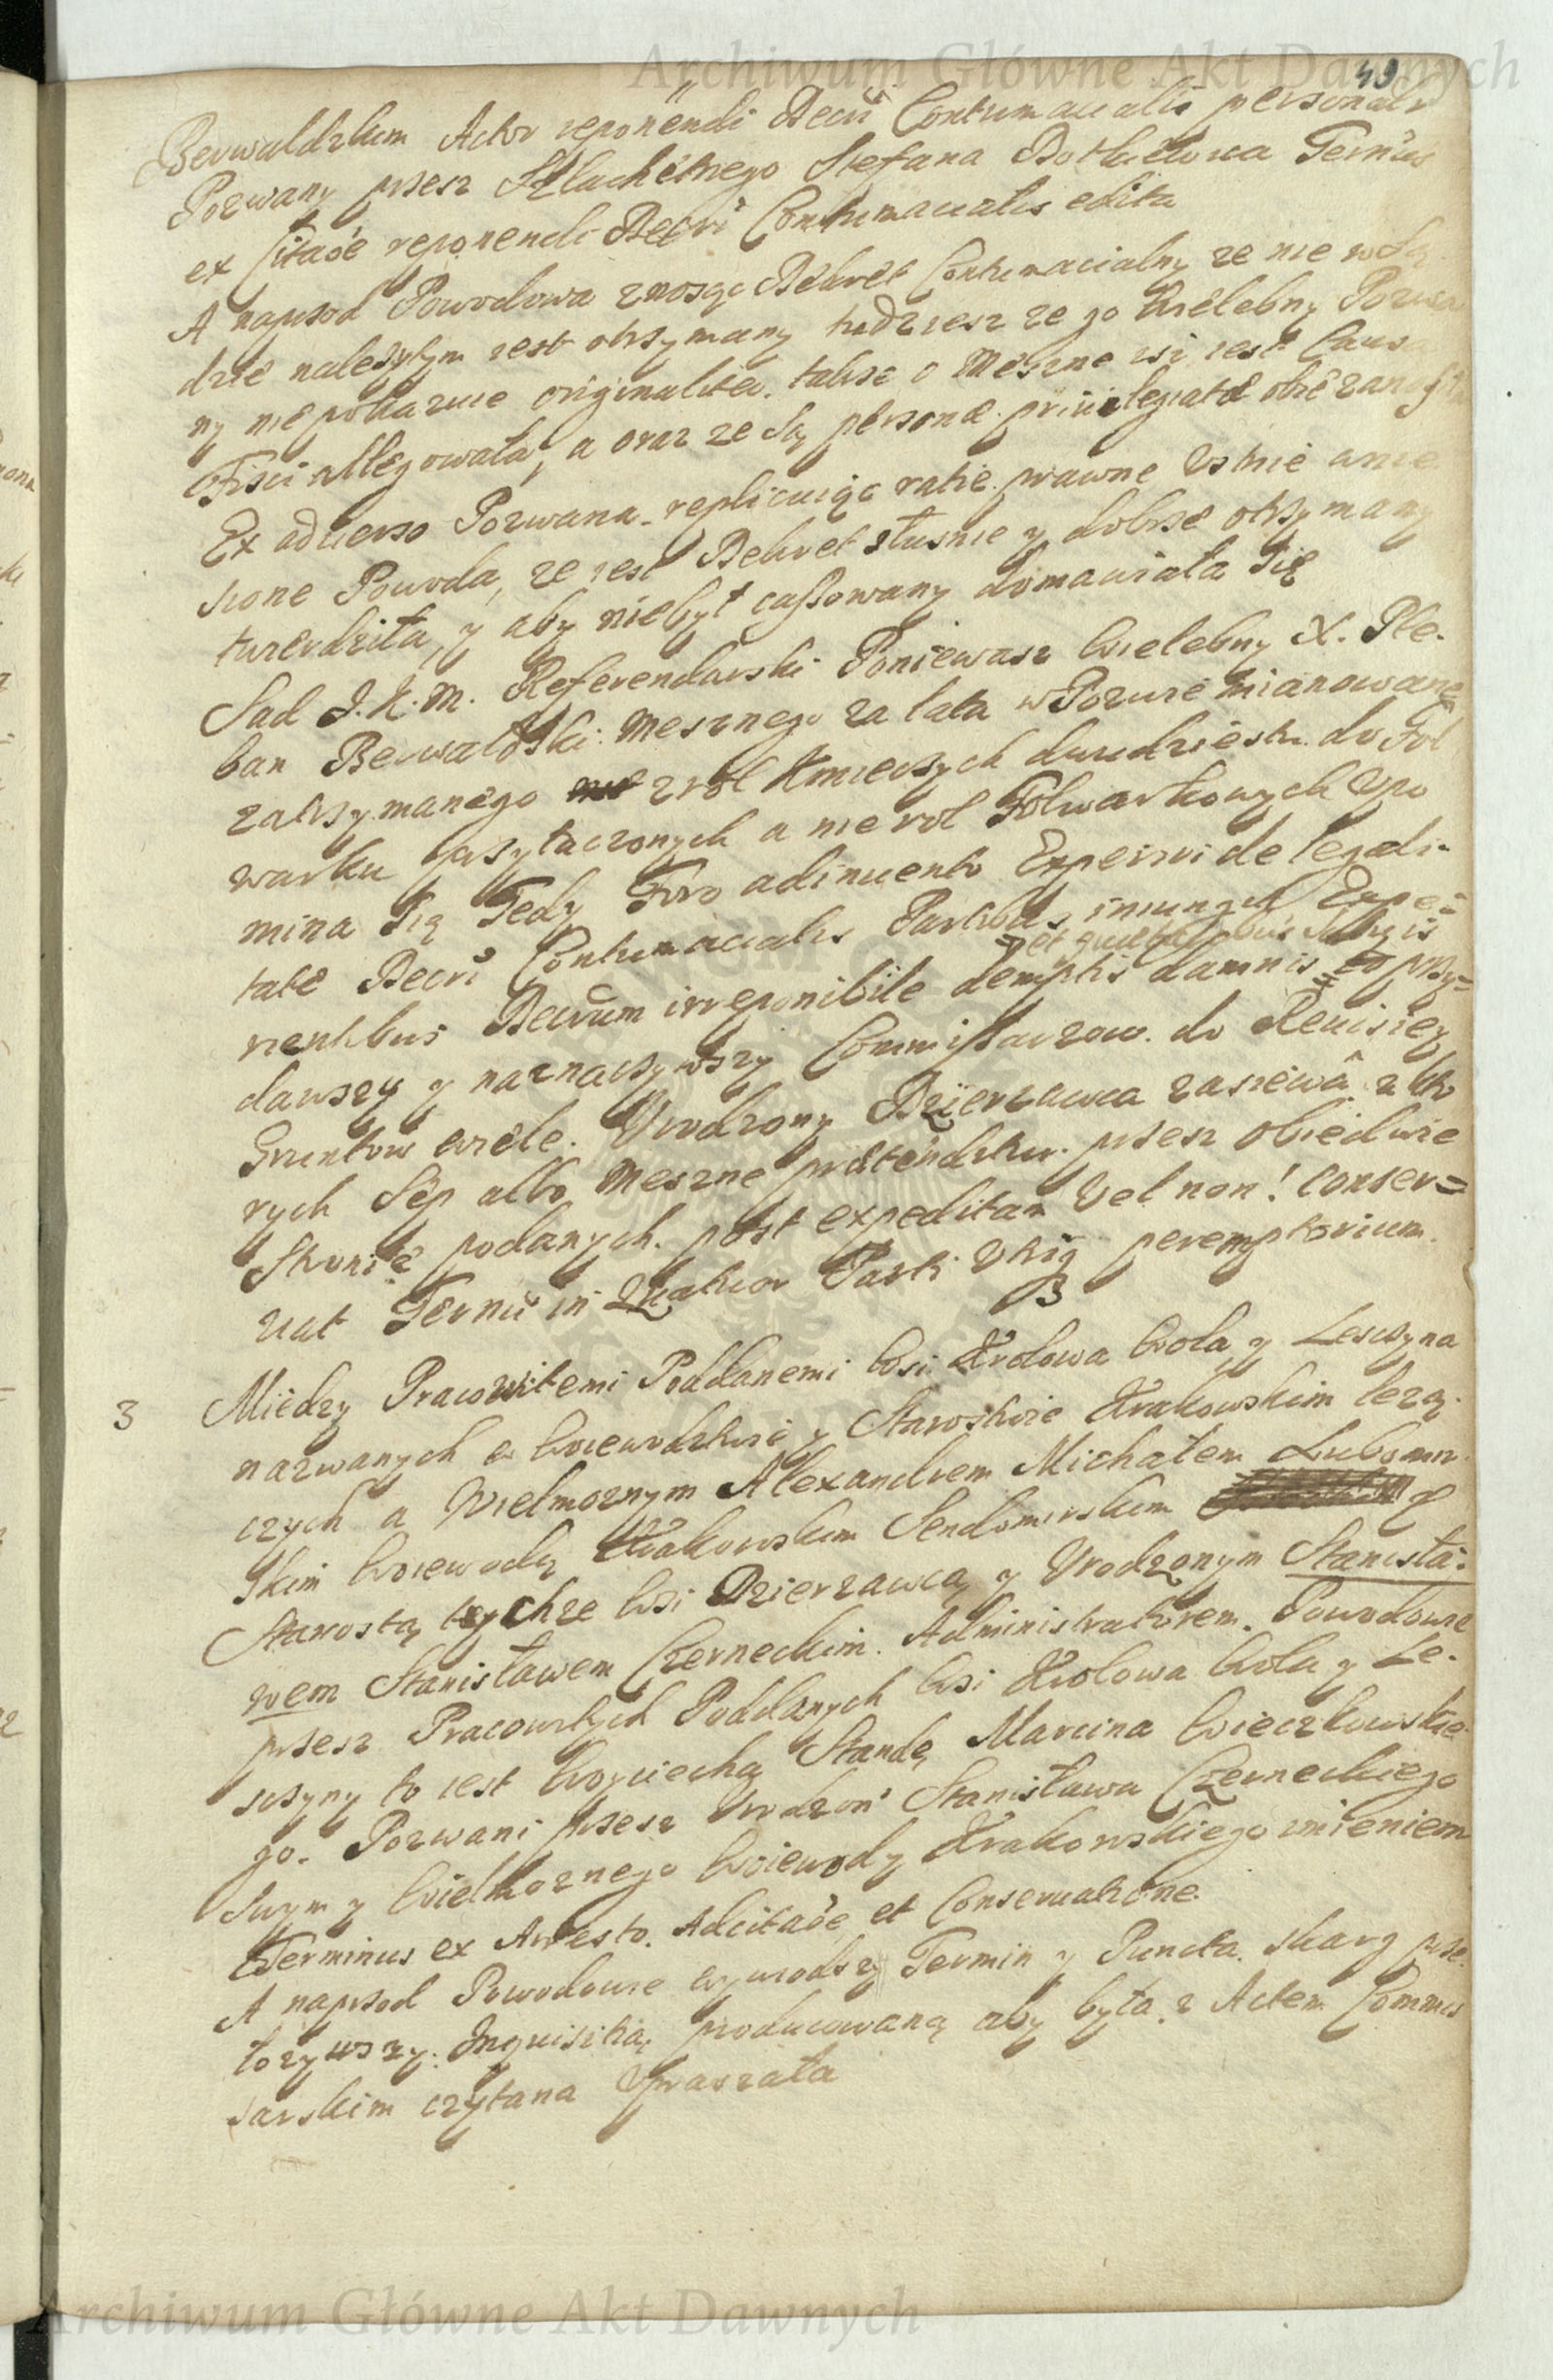 Archiwum Główne Akt Dawnych
49
Berwaldzkim Actor reponendi Decri Contumacialis personalr
Pozwany przesz Szlachetnego Stefana Terūs
ex Citaōe reponendi Decri Contumacialis edita
A naprzod Powodowa znosząc Dekret Contumacialny ze nie w Są-
dzie nalezytym iest otrzymany tudziesz ze go Wielebny Pozwa
ny nie pokazuie originaliter. takze o Meszne isz iest Causa
Fisci allegowała, a oraz ze są personæ priuilegiatæ obie
Ex aduerso Pozwana replicuiąc ratie prawne Ustnie wnie
sione Powoda, ze iest Dekret słusznie y dobrze otrzymany
twierdziła, y aby niebył cassowany domawiała się
Sad J.K.M. Referendarski Poniewasz Wielebny X. Ple-
ban Berwaldski Mesznego za lata w Pozwie mianowane
zatrzymanego z rol Kmiecych dwudziestu do Fol
warku przyłaczonych a nie rol Folwarkowych Upo
mina się Tedy Foro adinuento Experiri de legali-
tate Decri Contumacialis Partibus iniungit Expe-
rientibus Decrum irreponibile demptis damnis to przy=
et quibusuis lucris
dawszy y naznaczywszy Commissarzow do Reuisiey
Gruntow wiele Urodzony Dzierzawca zasiewa z kto
rych Sep albo Meszne prætenditur przesz obiedwie
Stronie podanych. post expeditam Vel non! Conser=
uat Ternū in Quatuor Parti Utriq peremptorium.
3 Między Pracowitemi Poddanemi Wsi Krolowa Wola y Lesczyna
nazwanych w Woiewodztwie y Starostwie Krakowskim lezą-
czych a Wielmoznym Alexandrem Michałem Lubomir
skim Woiewodą Krakowskim Sendomirskim y
Starostą tychze Wsi Dzierzawcą y Urodzonym Stanisła-
wem Stanisławem Czerneckim Administratorem. Powodowie
przesz Pracowitych Poddanych Wsi Krolowa Wola y Le-
sczyny to iest Woyciecha Stande Marcina Wieczkowskie
go. Pozwani przesz Urodzon Stanisława Czerneckiego
Swym y Wielmoznego Woiewody Krakowskiego imieniem
Terminus ex Arresto. Adcitaōe et Conseruatione.
A naprzod Powodowie wywodszy Termin y Puncta skarg prze
łozywszy. Inquisitią producowaną aby była z Actem Commis
sarskim czytana Upraszała
Archiwum Główne Akt Dawnych